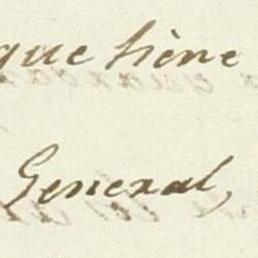 que tiène
General,